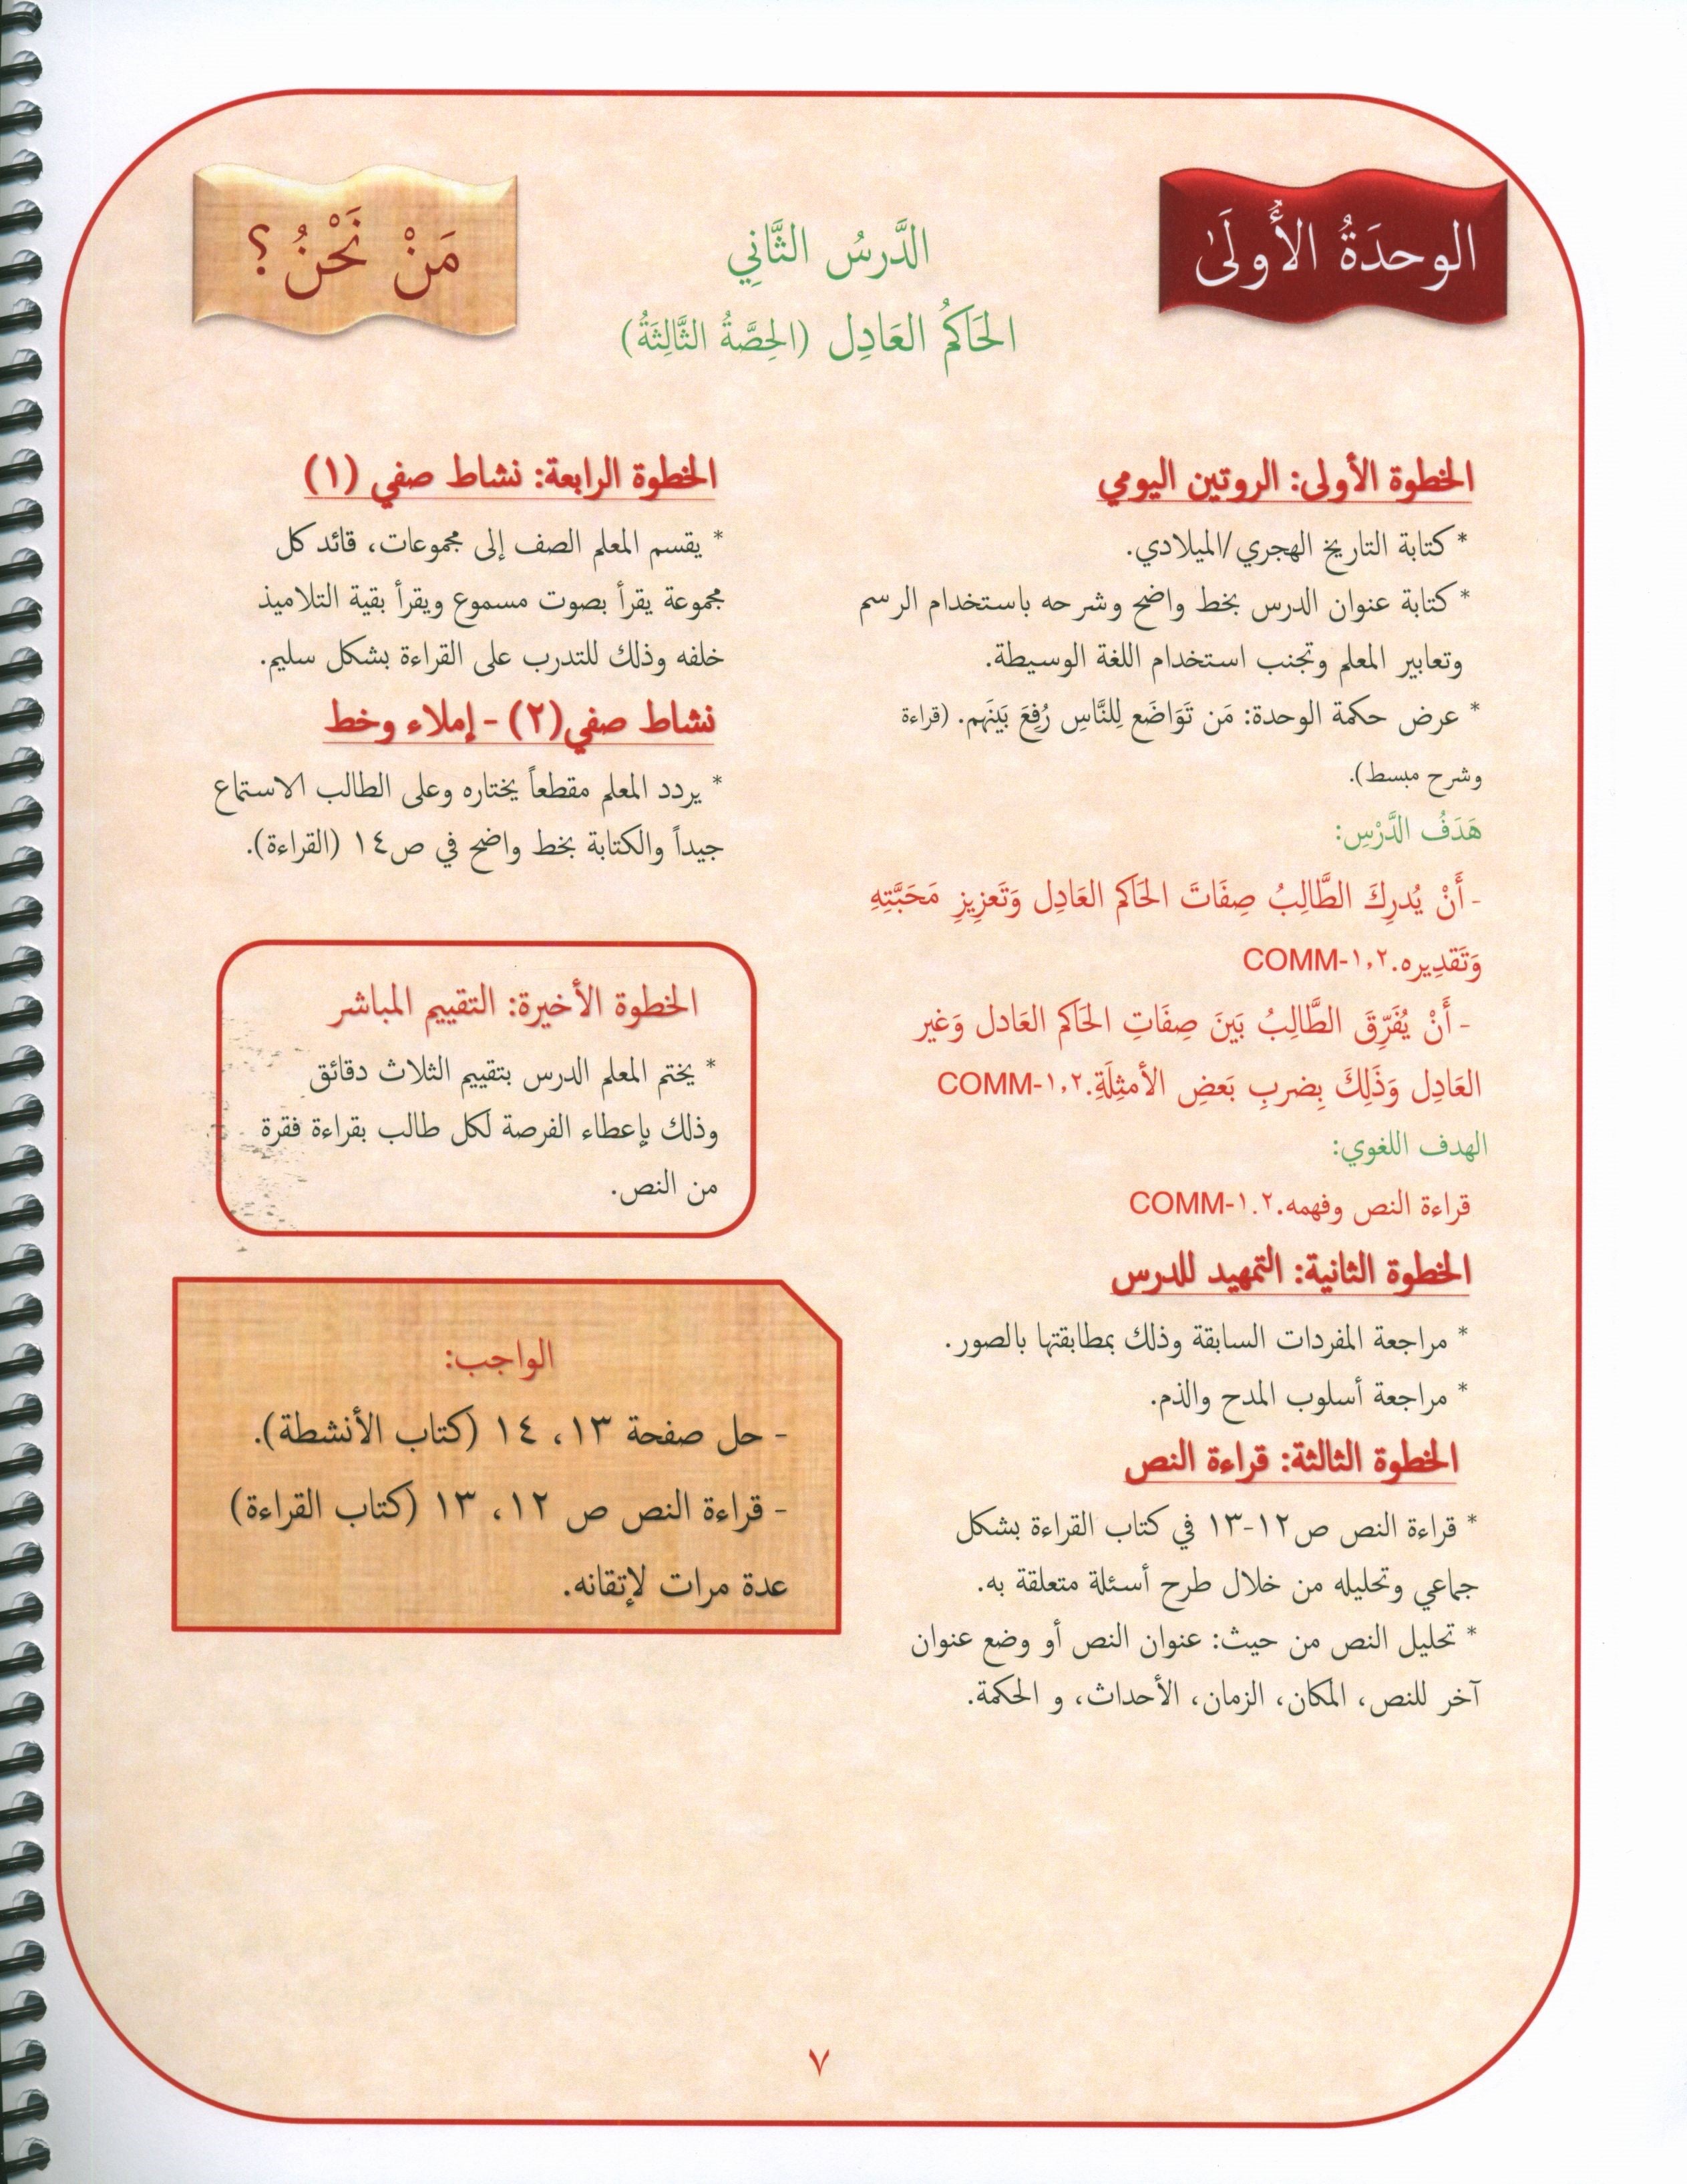 الوحدَةُ الأُولَىٰ
الدَّرسُ الثَّانِي
الحَاكمُ العَادِل (الحِصَّةُ الثَّالِثَةُ)
مَنْ نَحْنُ؟
الخطوة الأولى: الروتين اليومي
* كتابة التاريخ الهجري/الميلادي.
* كتابة عنوان الدرس بخط واضح وشرحه باستخدام الرسم
وتعابير المعلم وتجنب استخدام اللغة الوسيطة.
* عرض حكمة الوحدة: مَن تَوَاضَع لِلنَّاسِ رُفِعَ بَينَهم. (قراءة
وشرح مبسط).
هَدَفُ الدَّرْسِ:
- أَنْ يُدرِكَ الطَّالِبُ صِفَاتَ الحَاكم العَادِل وَتَعزِيزِ مَحَبَّتِهِ
وَتَقدِيره.COMM-١,٢
- أَنْ يُفَرِّقَ الطَّالِبُ بَينَ صِفَاتِ الحَاكم العَادل وَغَير
العَادِل وَذَلِكَ بِضربِ بَعضِ الأمثِلَةِ.COMM-١,٢
الهدف اللغوي:
قراءة النص وفهمه.COMM-١.٢
الخطوة الثانية: التمهيد للدرس
* مراجعة المفردات السابقة وذلك بمطابقتها بالصور.
* مراجعة أسلوب المدح والذم.
الخطوة الثالثة: قراءة النص
* قراءة النص ص١٢-١٣ في كتاب القراءة بشكل
جماعي وتحليله من خلال طرح أسئلة متعلقة به.
* تحليل النص من حيث: عنوان النص أو وضع عنوان
آخر للنص، المكان، الزمان، الأحداث، و الحكمة.
الخطوة الرابعة: نشاط صفي (١)
* يقسم المعلم الصف إلى مجموعات، قائد كل
مجموعة يقرأ بصوت مسموع ويقرأ بقية التلاميذ
خلفه وذلك للتدرب على القراءة بشكل سليم.
نشاط صفي(٢) - إملاء وخط
* يردد المعلم مقطعاً يختاره وعلى الطالب الاستماع
جيداً والكتابة بخط واضح في ص١٤ (القراءة).
الخطوة الأخيرة: التقييم المباشر
* يختم المعلم الدرس بتقييم الثلاث دقائق
وذلك بإعطاء الفرصة لكل طالب بقراءة فقرة
من النص.
الواجب:
- حل صفحة ١٣، ١٤ (كتاب الأنشطة).
- قراءة النص ص ١٢، ١٣ (كتاب القراءة)
عدة مرات لإتقانه.
٧